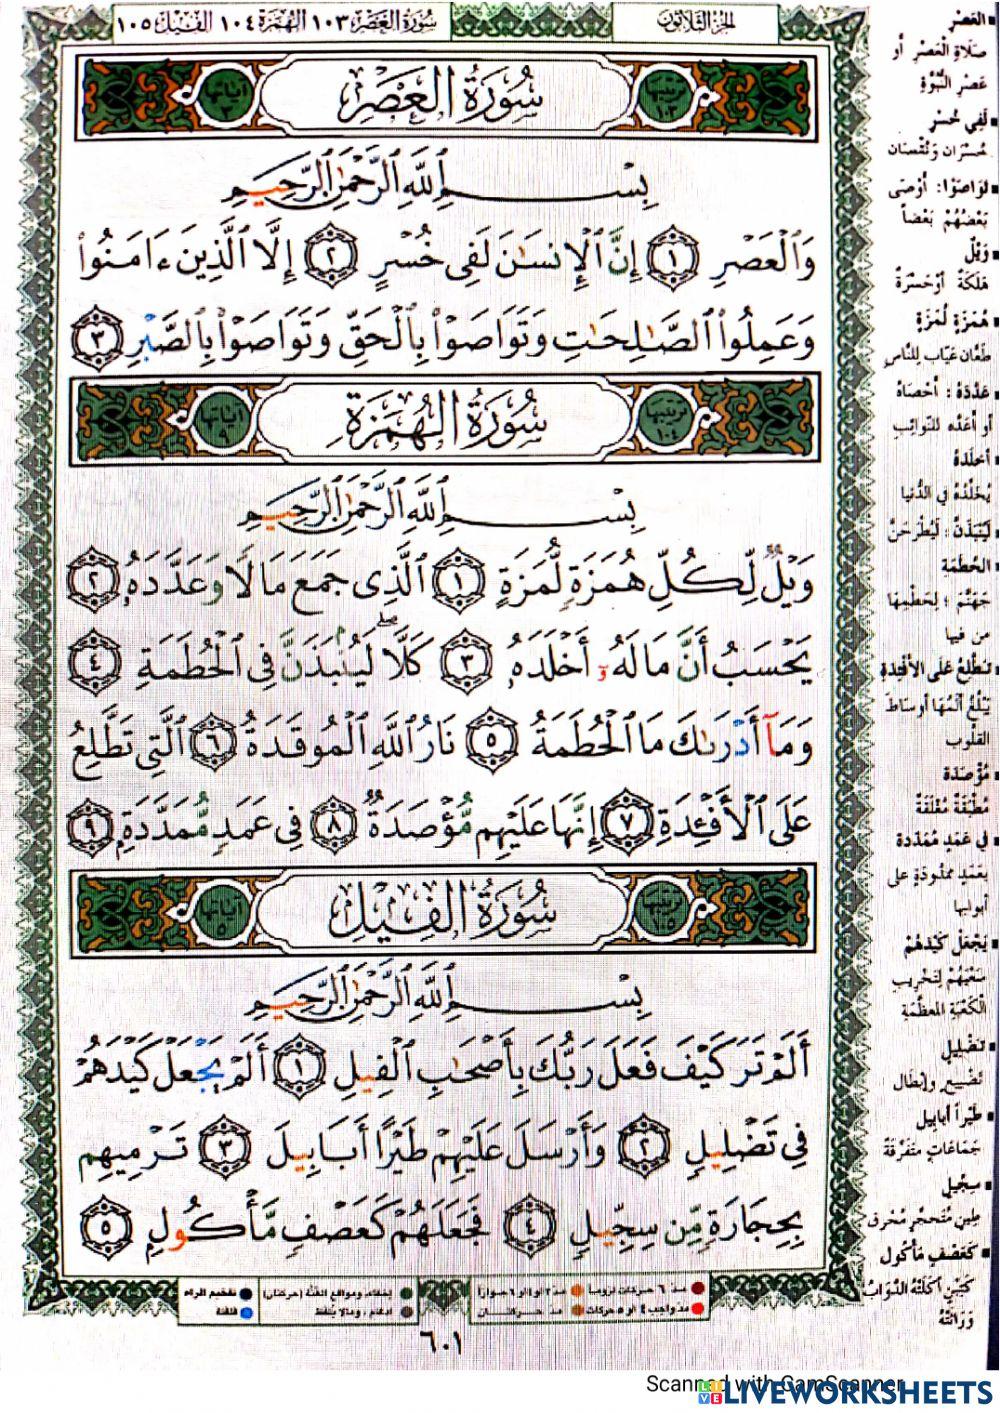 سُورَةُ العَصْرِ ١٠٣ الهُمَزَةِ ١٠٤ الفِيلِ ١٠٥
الجُزْءُ الثَّلَاثُونَ
آيَاتُهَا ٣
سُورَةُ العَصْرِ
تَرتِيبُهَا ١٠٣
بِسْمِ ٱللَّهِ ٱلرَّحْمَٰنِ ٱلرَّحِيمِ
وَٱلْعَصْرِ ١ إِنَّ ٱلْإِنسَٰنَ لَفِى خُسْرٍ ٢ إِلَّا ٱلَّذِينَ ءَامَنُوا۟
وَعَمِلُوا۟ ٱلصَّٰلِحَٰتِ وَتَوَاصَوْا۟ بِٱلْحَقِّ وَتَوَاصَوْا۟ بِٱلصَّبْرِ ٣
آيَاتُهَا ٩
سُورَةُ الهُمَزَةِ
تَرتِيبُهَا ١٠٤
بِسْمِ ٱللَّهِ ٱلرَّحْمَٰنِ ٱلرَّحِيمِ
وَيْلٌ لِّكُلِّ هُمَزَةٍ لُّمَزَةٍ ١ ٱلَّذِى جَمَعَ مَالًا وَعَدَّدَهُۥ ٢
يَحْسَبُ أَنَّ مَالَهُۥٓ أَخْلَدَهُۥ ٣ كَلَّا ۖ لَيُنۢبَذَنَّ فِى ٱلْحُطَمَةِ ٤
وَمَآ أَدْرَىٰكَ مَا ٱلْحُطَمَةُ ٥ نَارُ ٱللَّهِ ٱلْمُوقَدَةُ ٦ ٱلَّتِى تَطَّلِعُ
عَلَى ٱلْأَفْـِٔدَةِ ٧ إِنَّهَا عَلَيْهِم مُّؤْصَدَةٌ ٨ فِى عَمَدٍ مُّمَدَّدَةٍۭ ٩
آيَاتُهَا ٥
سُورَةُ الفِيلِ
تَرتِيبُهَا ١٠٥
بِسْمِ ٱللَّهِ ٱلرَّحْمَٰنِ ٱلرَّحِيمِ
أَلَمْ تَرَ كَيْفَ فَعَلَ رَبُّكَ بِأَصْحَٰبِ ٱلْفِيلِ ١ أَلَمْ يَجْعَلْ كَيْدَهُمْ
فِى تَضْلِيلٍ ٢ وَأَرْسَلَ عَلَيْهِمْ طَيْرًا أَبَابِيلَ ٣ تَرْمِيهِم
بِحِجَارَةٍ مِّن سِجِّيلٍ ٤ فَجَعَلَهُمْ كَعَصْفٍ مَّأْكُولٍۭ ٥
■ العَصْرِ
صَلَاةِ الْعَصْرِ أَو
عَصْرِ النُّبُوَّةِ
■ لَفِي خُسْرٍ
خُسْرَان وَنُقْصَان
■ تَوَاصَوْا: أَوْصَى
بَعْضُهُمْ بَعْضاً
■ وَيْلٌ
هَلَكَةٌ أَوْحَسْرَةٌ
■ هُمَزَةٍ لُمَزَةٍ
طَعَّان عَيَّاب لِلنَّاسِ
■ عَدَّدَهُ : أَحْصَاهُ
أَو أَعَدَّه لِلنَّوَائِبِ
■ أَخْلَدَهُ
يُخَلِّدُهُ في الدُّنيا
■ لَيُنْبَذَنَّ : لَيُطْرَحَنَّ
■ الحُطَمَةِ
جَهَنَّم ؛ لِحَطْمِهَا
من فيها
■ تَطَّلِعُ عَلَى الأَفْئِدَةِ
يَبْلُغُ أَلَمُهَا أَوسَاطَ
القلوب
■ مُؤْصَدَة
مُطْبَقَةٌ مُغْلَقَةٌ
■ في عَمَدٍ مُمَدَّدة
بِعَمَدٍ ممْدُودَةٍ على
أبوابها
■ يَجْعَلْ كَيْدَهُمْ
سَعْيَهُمْ لِتَخْرِيبِ
الكَعْبَةِ المعظَّمَةِ
■ تَضْلِيلٍ
تَضْيِيعٍ وإبْطَال
■ طَيْراً أَبَابِيل
جَمَاعَاتٍ متَفَرِّقَةً
■ سِجِّيلٍ
طينٍ مُتَحَجِّرٍ مُحْرَق
■ كَعَصْفٍ مَأكُول
كَتِبْنٍ أَكَلَتْهُ الدَّوَابُّ
وَرَاثَتْهُ
مدّ ٦ حركات لزوماً
مدّ ٢ او ٤ او ٦ جوازاً
مدّ واجب ٤ او ٥ حركات
مدّ حركتان
إخفاء، ومواقع الغُنَّة (حركتان)
ادغام ، وما لا يُلفَظ
تفخيم الراء
قلقلة
٦٠١
Scanned with CamScanner
LIVEWORKSHEETS